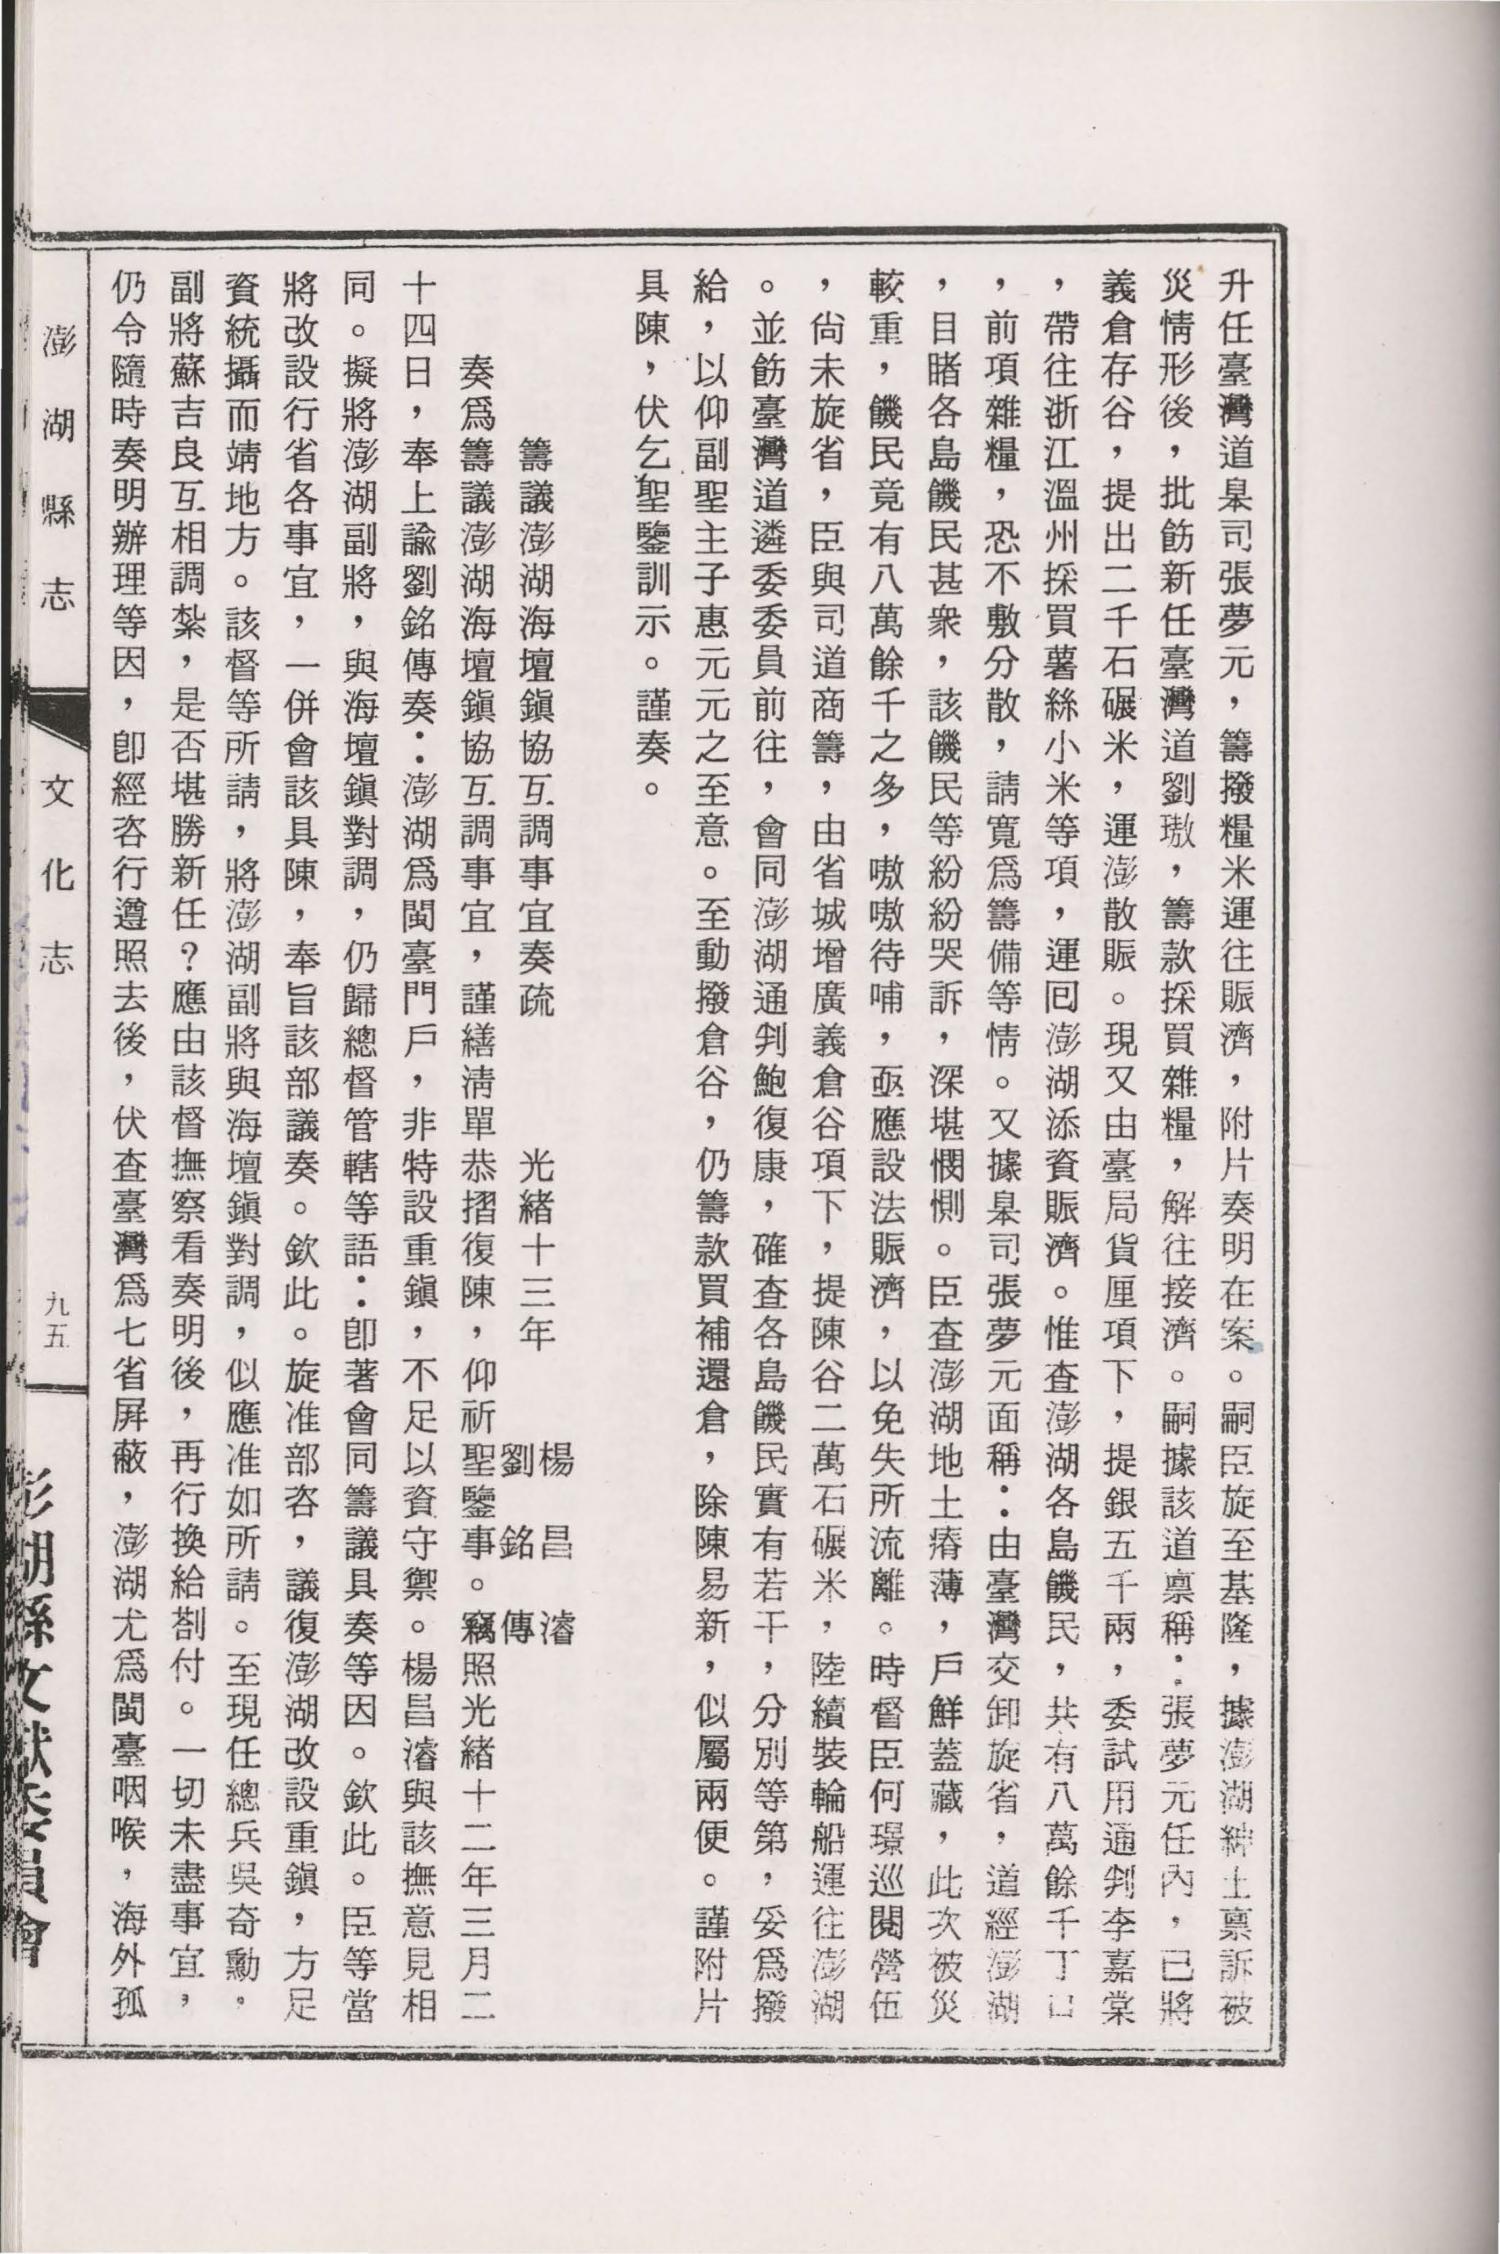 升任臺灣道臬司張夢元，籌撥糧米運往賑濟，附片奏明在案。嗣臣旋至基隆，據澎湖紳士稟訴被
災情形後，批飭新任臺灣道劉璈，籌款採買雜糧，解往接濟。嗣據該道稟稱：張夢元任內，已將
義倉存谷，提出二千石碾米，運澎散賑。現又由臺局貨厘項下，提銀五千兩，委試用通判李嘉棠
，帶往浙江溫州採買薯絲小米等項，運回澎湖添資賑濟。惟查澎湖各島饑民，共有八萬餘千丁口
，前項雜糧，恐不敷分散，請寬爲籌備等情。又據臬司張夢元面稱：由臺灣交卸旋省，道經澎湖
，目睹各島饑民甚衆，該饑民等紛紛哭訴，深堪憫惻。臣查澎湖地土瘠薄，戶鮮蓋藏，此次被災
較重，饑民竟有八萬餘千之多，嗷嗷待哺，亟應設法賑濟，以免失所流離。時督臣何璟巡閱營伍
，尙未旋省，臣與司道商籌，由省城增廣義倉谷項下，提陳谷二萬石碾米，陸續裝輪船運往澎湖
。並飭臺灣道遴委委員前往，會同澎湖通判鮑復康，確查各島饑民實有若干，分別等第，妥爲撥
給，以仰副聖主子惠元元之至意。至動撥倉谷，仍籌款買補還倉，除陳易新，似屬兩便。謹附片
具陳，伏乞聖鑒訓示。謹奏。
籌議澎湖海壇鎭協互調事宜奏疏　光緒十三年　楊昌濬　劉銘傳
奏爲籌議澎湖海壇鎭協互調事宜，謹繕淸單恭摺復陳，仰祈聖鑒事。竊照光緒十二年三月二
十四日，奉上諭劉銘傳奏：澎湖爲閩臺門戶，非特設重鎭，不足以資守禦。楊昌濬與該撫意見相
同。擬將澎湖副將，與海壇鎭對調，仍歸總督管轄等語：卽著會同籌議具奏等因。欽此。臣等當
將改設行省各事宜，一併會該具陳，奉旨該部議奏。欽此。旋准部咨，議復澎湖改設重鎭，方足
資統攝而靖地方。該督等所請，將澎湖副將與海壇鎭對調，似應准如所請。至現任總兵吳奇勳，
副將蘇吉良互相調紮，是否堪勝新任？應由該督撫察看奏明後，再行換給劄付。一切未盡事宜，
仍令隨時奏明辦理等因，卽經咨行遵照去後，伏查臺灣爲七省屏蔽，澎湖尤爲閩臺咽喉，海外孤
澎湖縣志　文化志　九五
澎湖縣文獻委員會